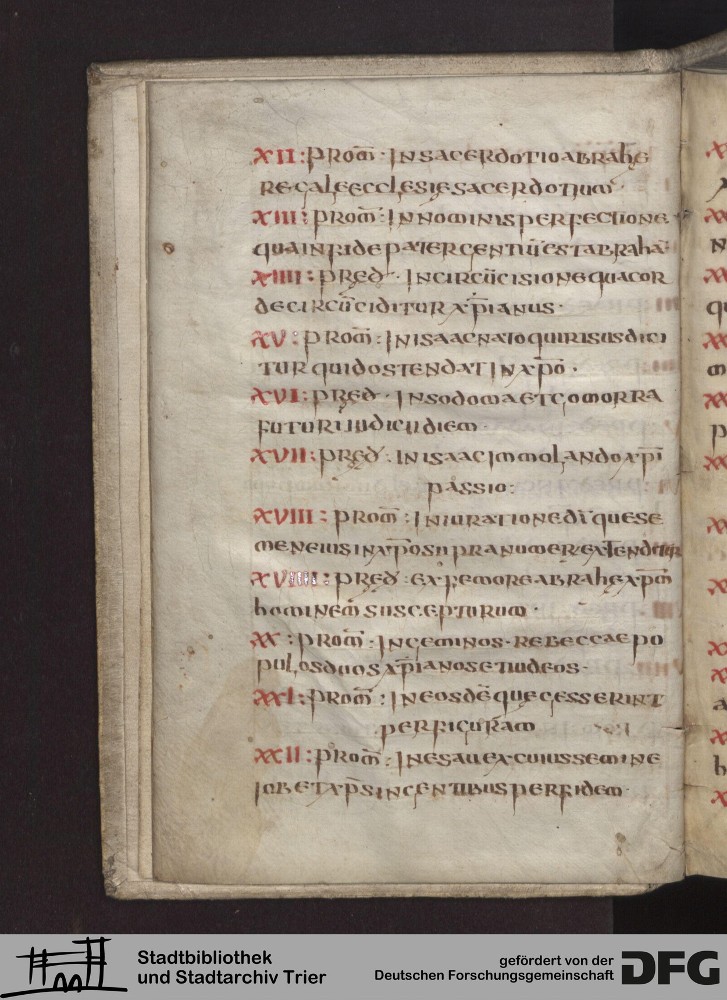 XII: prom̄ · In sacerdotio abrahę
regale ecclesię sacerdotium ·
XIII: prom̄ · In nominis perfectione
qua in fide pater gentiū est abrahā
XIIII: pręd · In circūcisione qua cor
de circūciditur xp̄ianus ·
XV: prom̄ : In isaac nato qui risus dici
tur quid ostendat in xp̄o ·
XVI: pręd · In sodoma et gomorra
futuri iudicii diem ·
XVII: pręd · In isaac immolando xp̄i
passio:
XVIII: prom̄ : In iuratione dī que se
men eius in xp̄o sup̱ra numer extenditur
XVIIII: pręd : ex femore abrahę xp̄m
hominem suscepturum ·
XX: prom̄ · In geminos · rebeccae po
pulos duos xp̄ianos et iudeos ·
XXI: prom̄ : In eos dē que gesserint
per figuram
XXII: prom̄ : In esau ex cuius semine
iob et xp̄s in gentibus per fidem ·
Stadtbibliothek
und Stadtarchiv Trier
gefördert von der
Deutschen Forschungsgemeinschaft
DFG